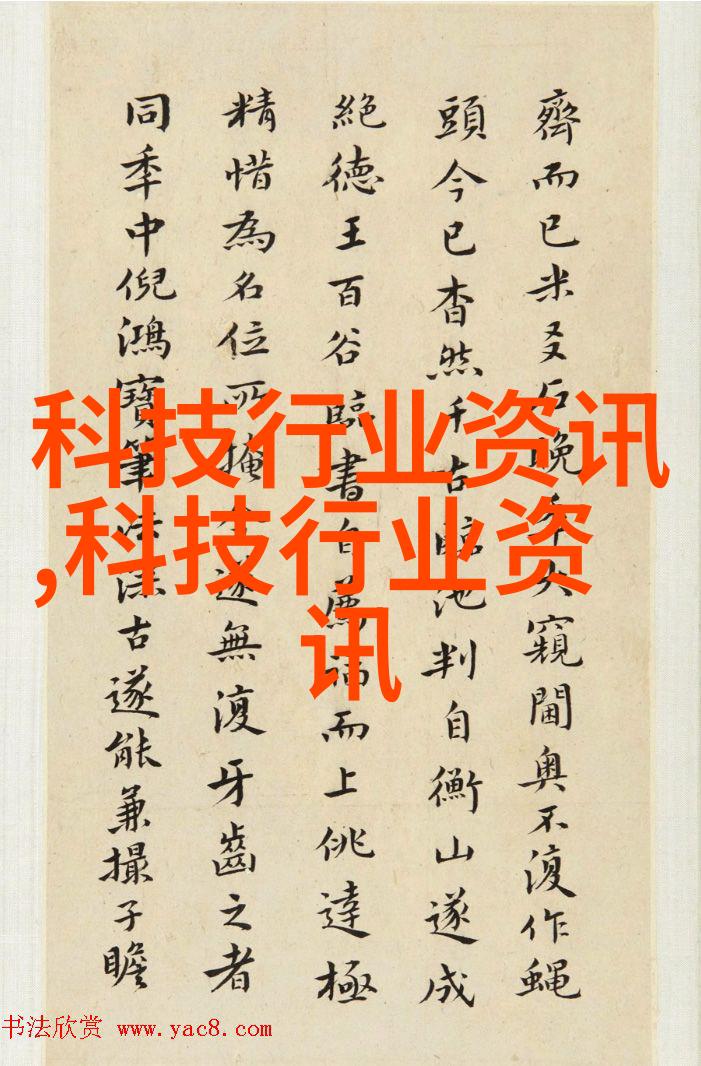 科技行业资讯
,科技行业资
讯
齊而已米友石晚年大窺閫奧不復作蠅
頭今已杳然千古臨池判自衡山遂成
絕德王百谷臨書自薦福而上佻達極
精惜為名位所掩今遂無復牙齒之者
同秊中倪鴻寶筆法深古遂能兼撮子瞻
书法欣赏 www.yac8.com